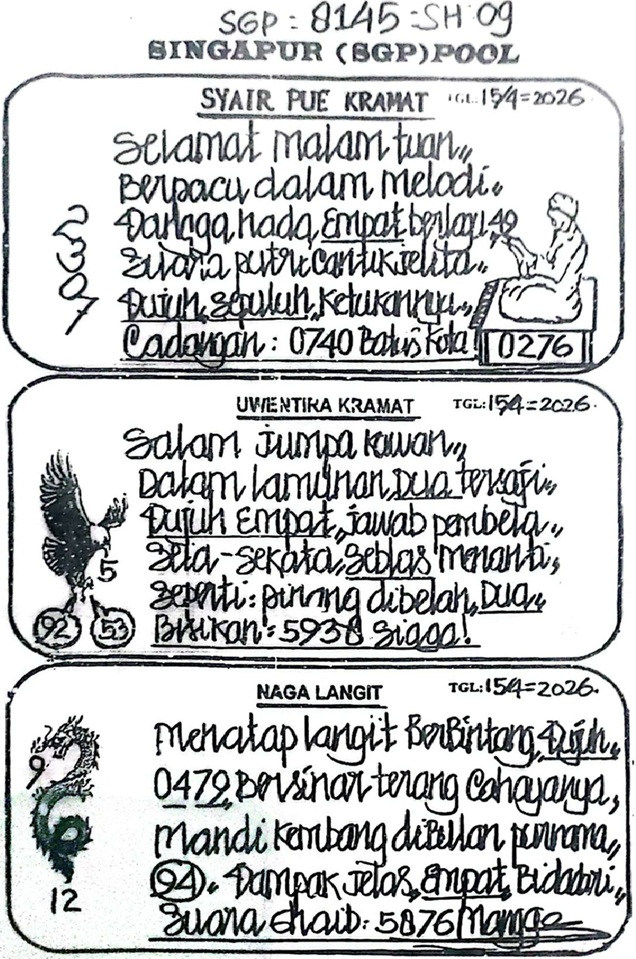 SGP : 8145 = SH 09
SINGAPUR (SGP) POOL
SYAIR PUE KRAMAT TGL: 15/4=2026
Selamat malam tuan,,
Berpacu dalam melodi.
Tangga nada, Empat berlagu, 49
Suara putri cantik jelita,,
Tujuh, sepuluh, ketukannya,,
Cadangan : 0740 Kota!
0276
UWENTIRA KRAMAT TGL: 15/4=2026.
Salam jumpa kawan,,
Dalam lamunan, Dua tersaji,,
Tujuh Empat, jawab pembela,,
Seia-sekata, Seblas menanti,
5
Seperti : pinang dibelah, Dua,,
92 53
Bisikan : 5938 Siaga!
NAGA LANGIT TGL: 15/4=2026.
Menatap langit Berbintang, Tujuh,,
9
0479, Bersinar terang Cahayanya,
Mandi kembang dibulan purnama,,
94. Tampak jelas, Empat, Bidadari,,
12
Suara Ghaib : 5876